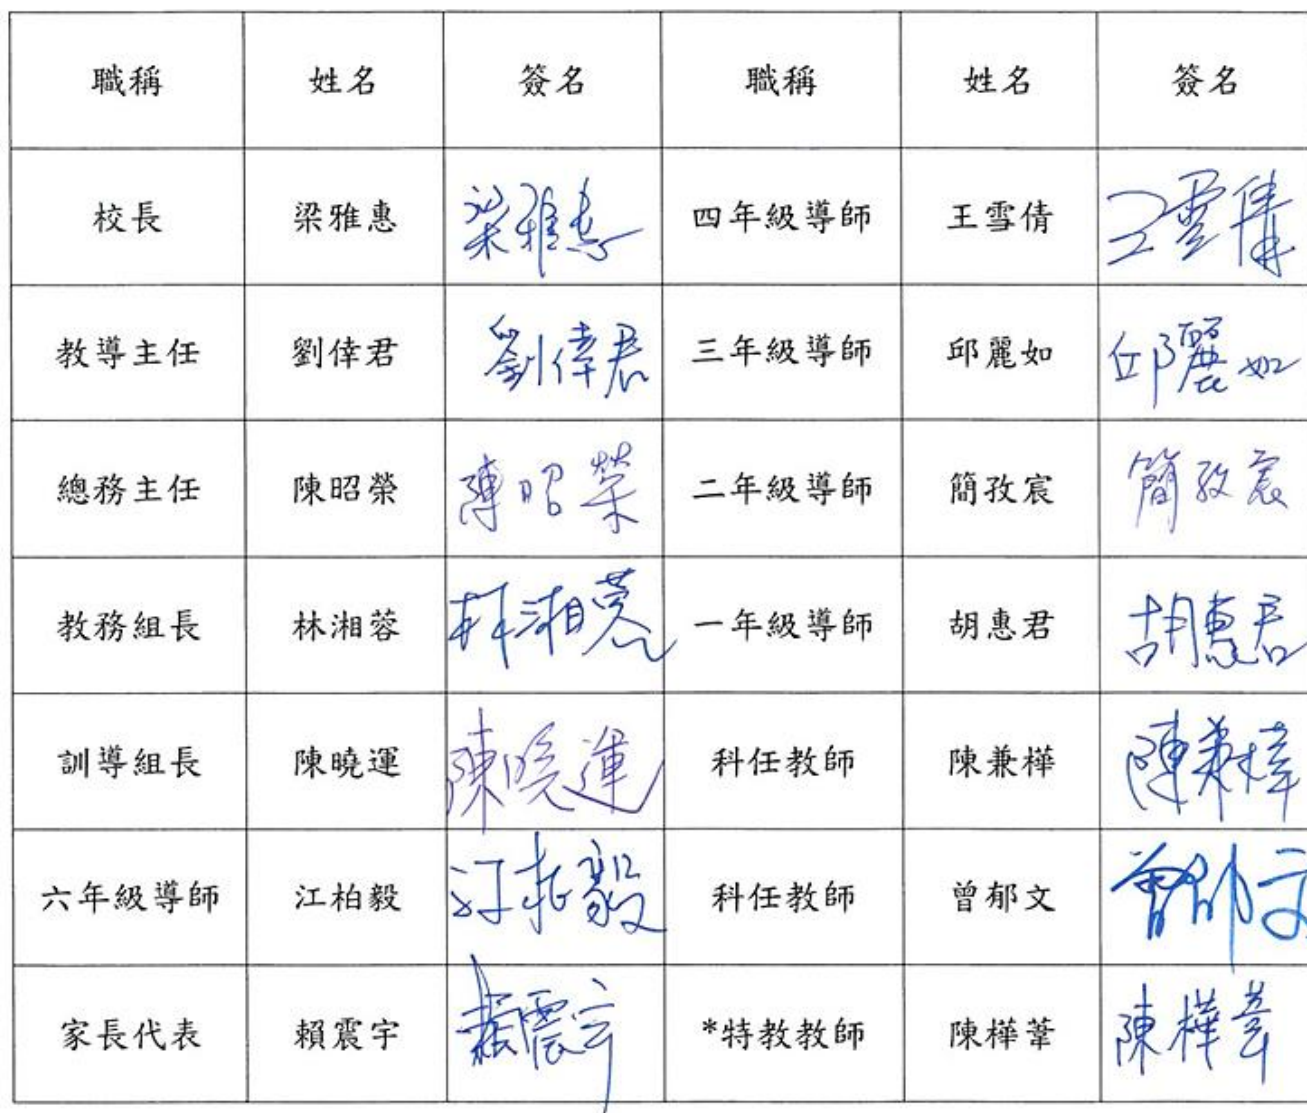 職稱 姓名 簽名 職稱 姓名 簽名
校長 梁雅惠 梁雅惠 四年級導師 王雪倩 王雪倩
教導主任 劉倖君 劉倖君 三年級導師 邱麗如 邱麗如
總務主任 陳昭榮 陳昭榮 二年級導師 簡孜宸 簡孜宸
教務組長 林湘蓉 林湘蓉 一年級導師 胡惠君 胡惠君
訓導組長 陳曉運 陳曉運 科任教師 陳兼樺 陳兼樺
六年級導師 江柏毅 江柏毅 科任教師 曾郁文 曾郁文
家長代表 賴震宇 賴震宇 *特教教師 陳樺葦 陳樺葦